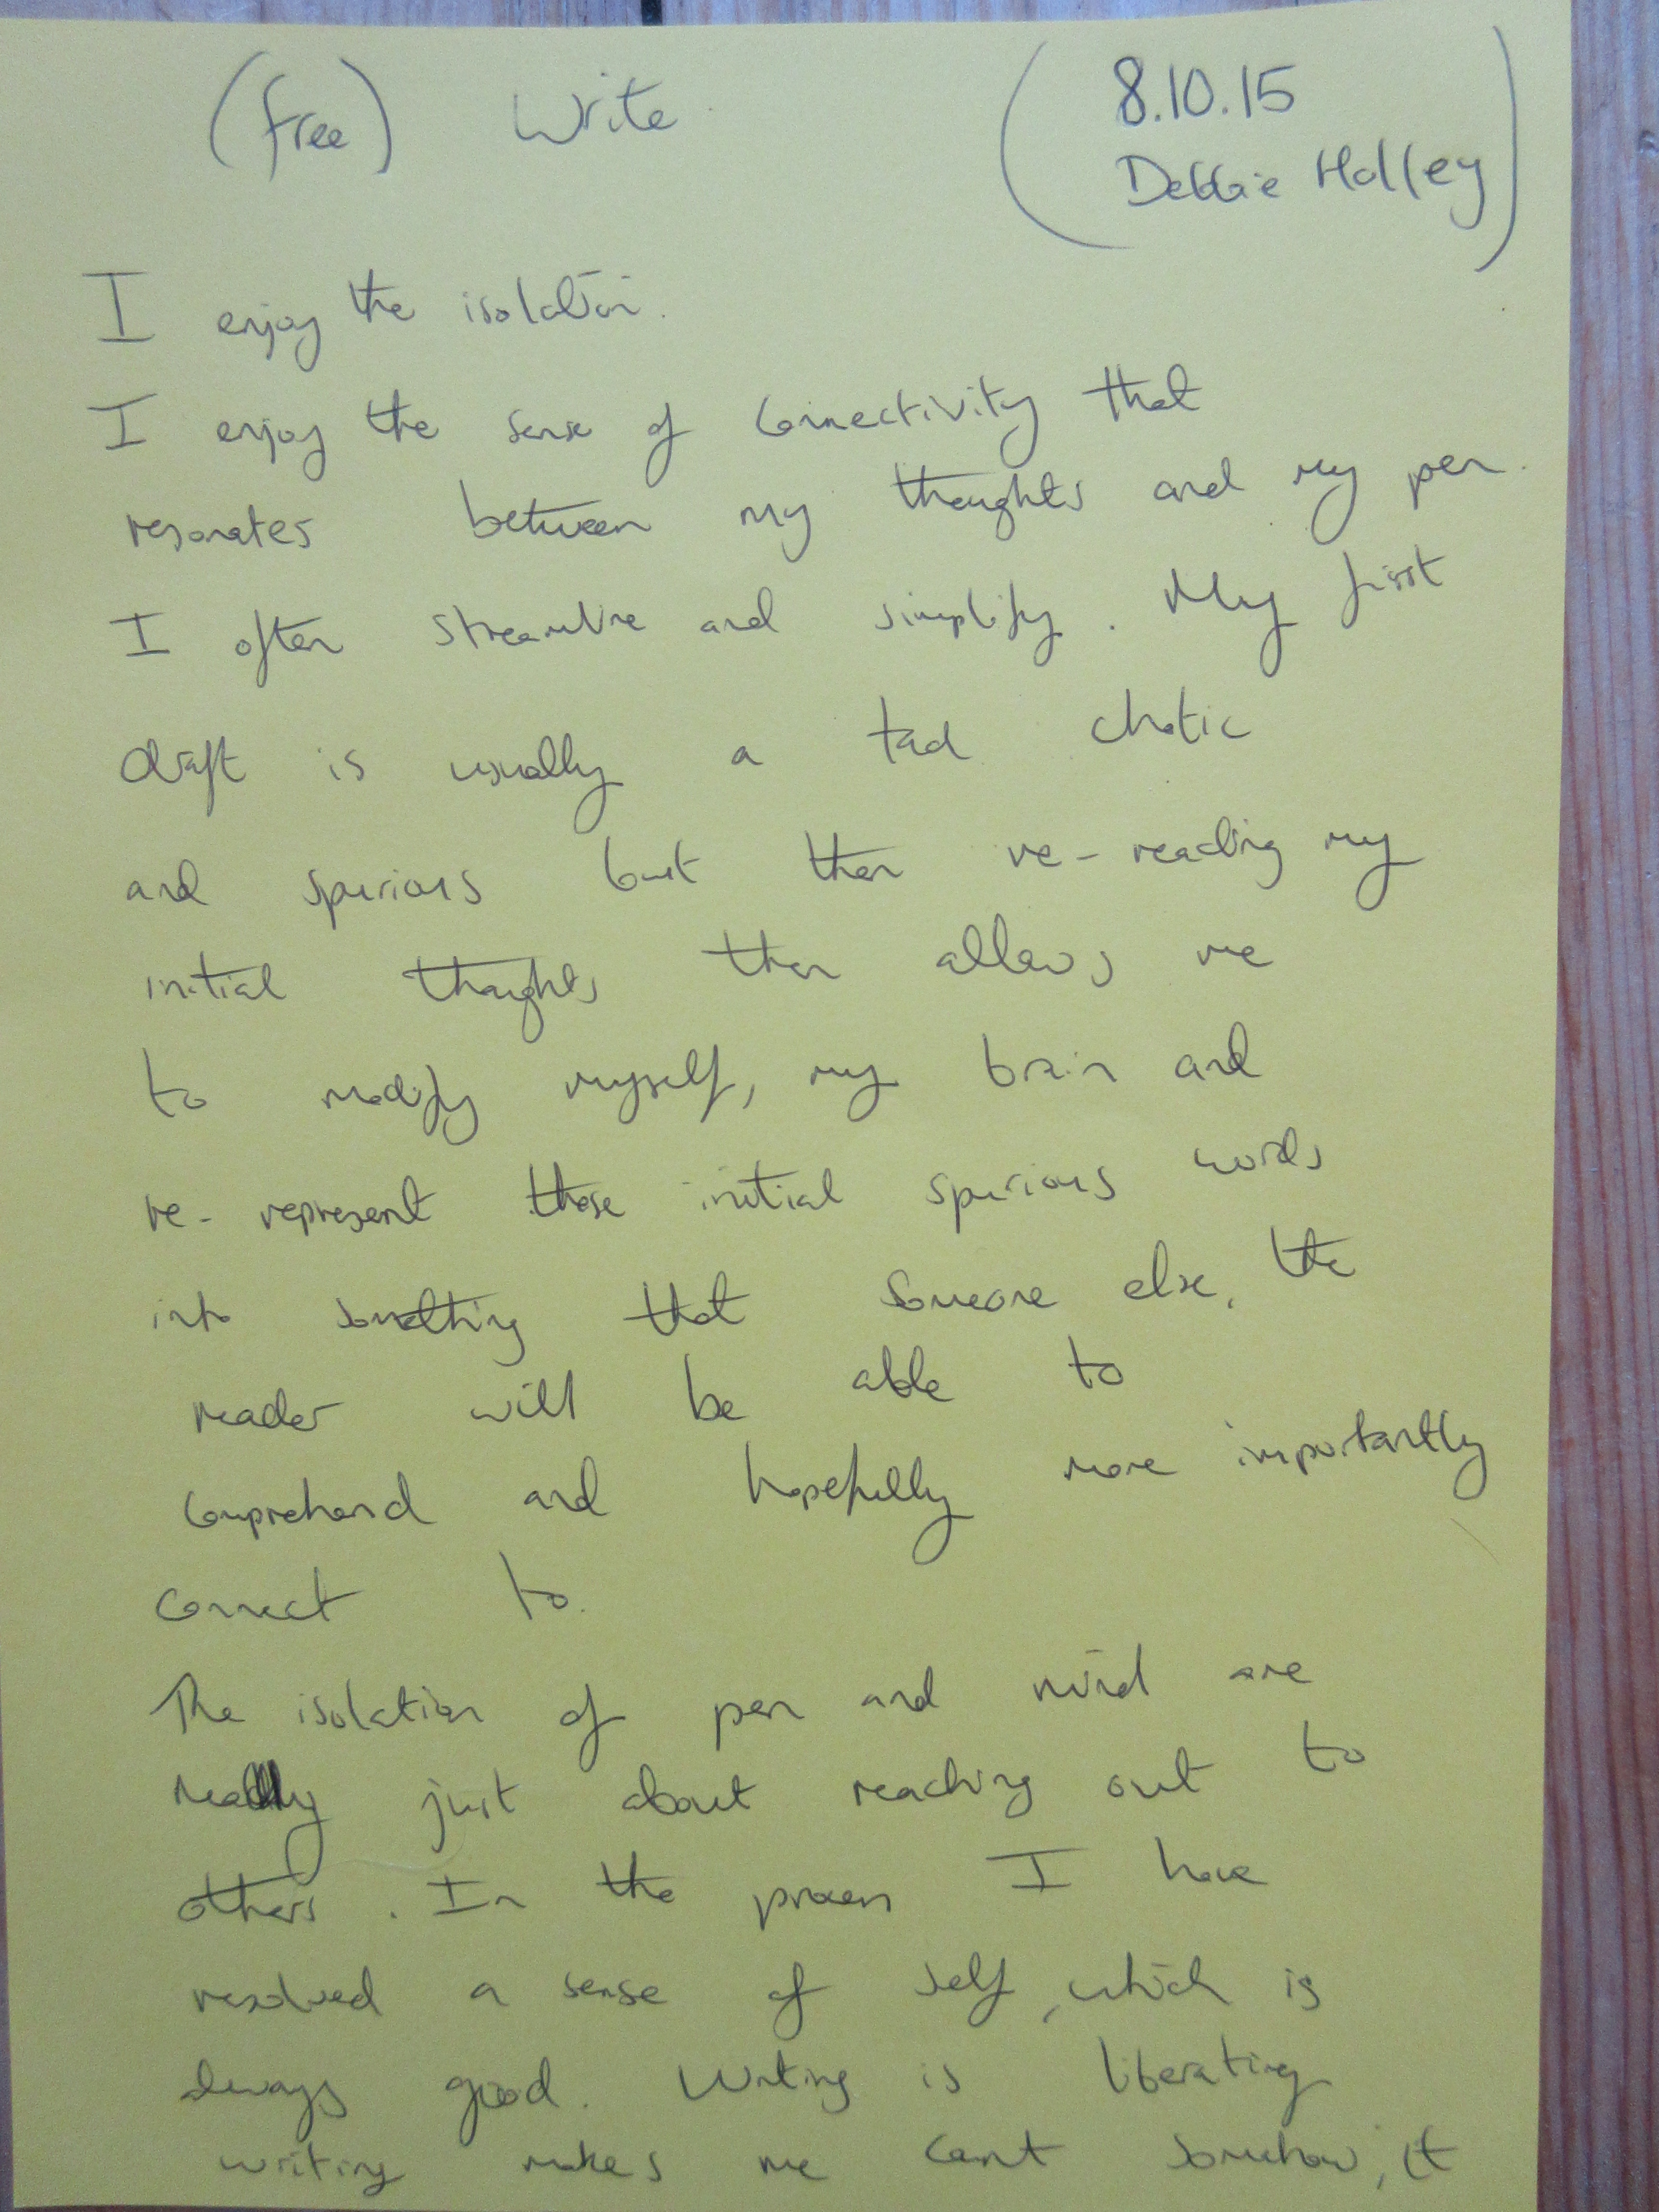 (free) Write
(8.10.15
Debbie Holley)
I enjoy the isolation.
I enjoy the sense of connectivity that
resonates between my thoughts and my pen.
I often streamline and simplify. My first
draft is usually a tad chatic
and spurious but then re-reading my
initial thoughts then allows me
to modify myself, my brain and
re-represent those initial spurious words
into something that someone else, the
reader will be able to
comprehend and hopefully more importantly
connect to.
The isolation of pen and mind are
really just about reaching out to
others. In the process I have
resolved a sense of self, which is
always good. Writing is liberating
writing makes me count somehow, it